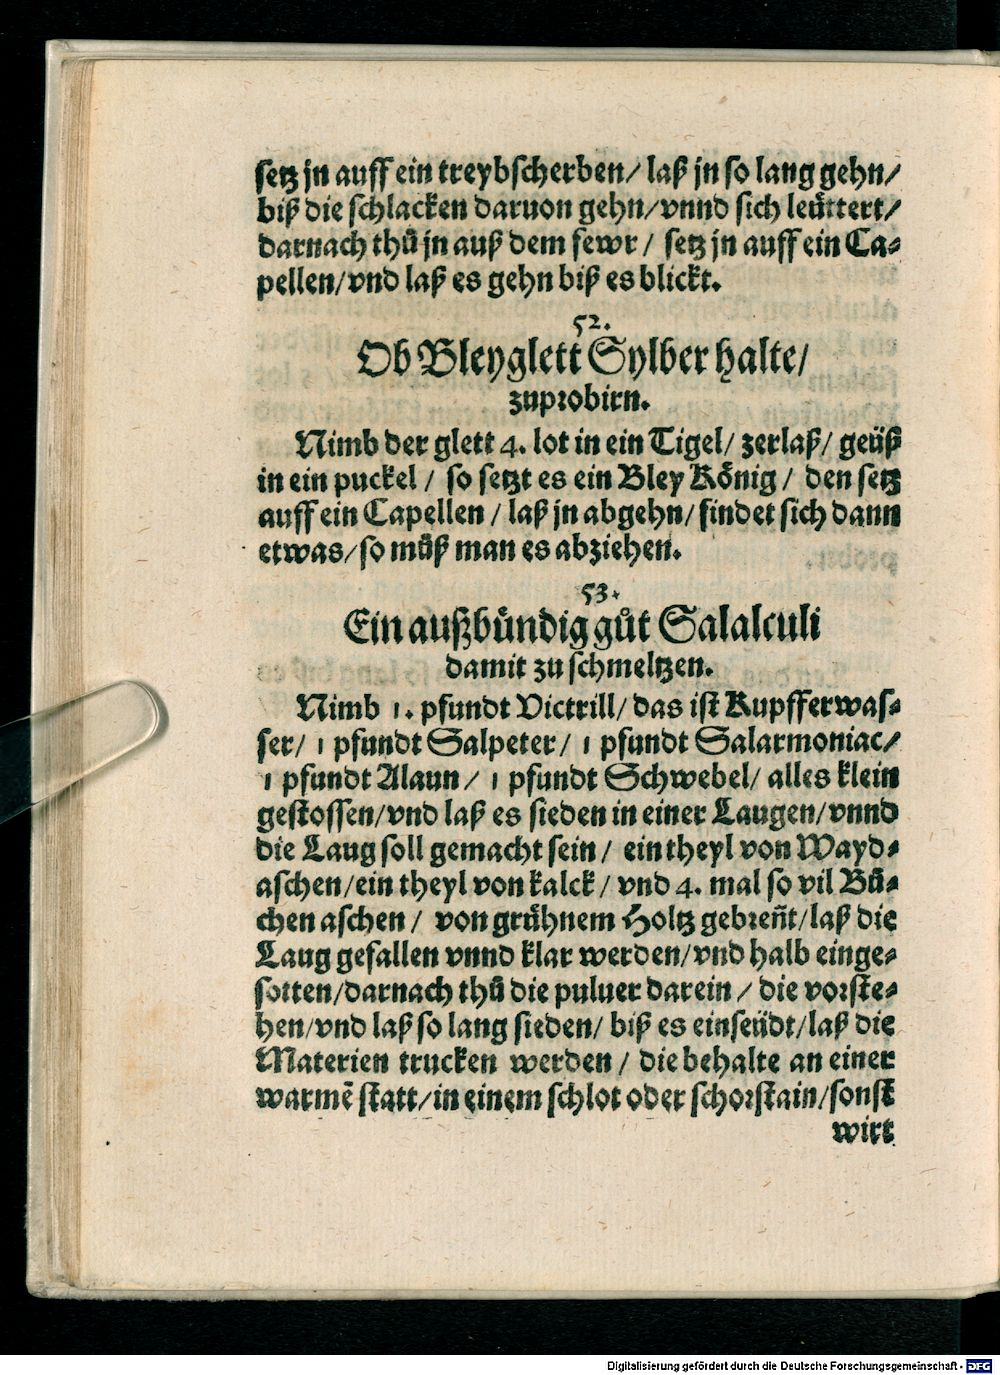 setz jn auff ein treybscherben/ laß jn so lang gehn/
biß die schlacken daruon gehn/vnnd sich leüttert/
darnach thů jn auß dem fewr / setz jn auff ein Ca-
pellen/vnd laß es gehn biß es blickt.
52.
Ob Bleyglett Sylber halte/
zuprobirn.
Nimb der glett 4. lot in ein Tigel/ zerlaß/ geüß
in ein puckel / so setzt es ein Bley König / den setz
auff ein Capellen / laß jn abgehn/ findet sich dann
etwas/so můß man es abziehen.
53.
Ein außbündig gůt Salalculi
damit zu schmeltzen.
Nimb 1. pfundt Victrill/ das ist Kupfferwas-
ser/ 1 pfundt Salpeter/ 1 pfundt Salarmoniac/
1 pfundt Alaun / 1 pfundt Schwebel/ alles klein
gestossen/vnd laß es sieden in einer Laugen/vnnd
die Laug soll gemacht sein / ein theyl von Wayd-
aschen/ein theyl von kalck / vnd 4. mal so vil Bů-
chen aschen / von grühnem Holtz gebreñt/laß die
Laug gefallen vnnd klar werden/vnd halb einge-
sotten/darnach thů die puluer darein / die vorste-
hen/vnd laß so lang sieden/ biß es einseüdt/laß die
Materien trucken werden / die behalte an einer
warmẽ statt/in einem schlot oder schorstain/sonst
wirt
Digitalisierung gefördert durch die Deutsche Forschungsgemeinschaft - DFG